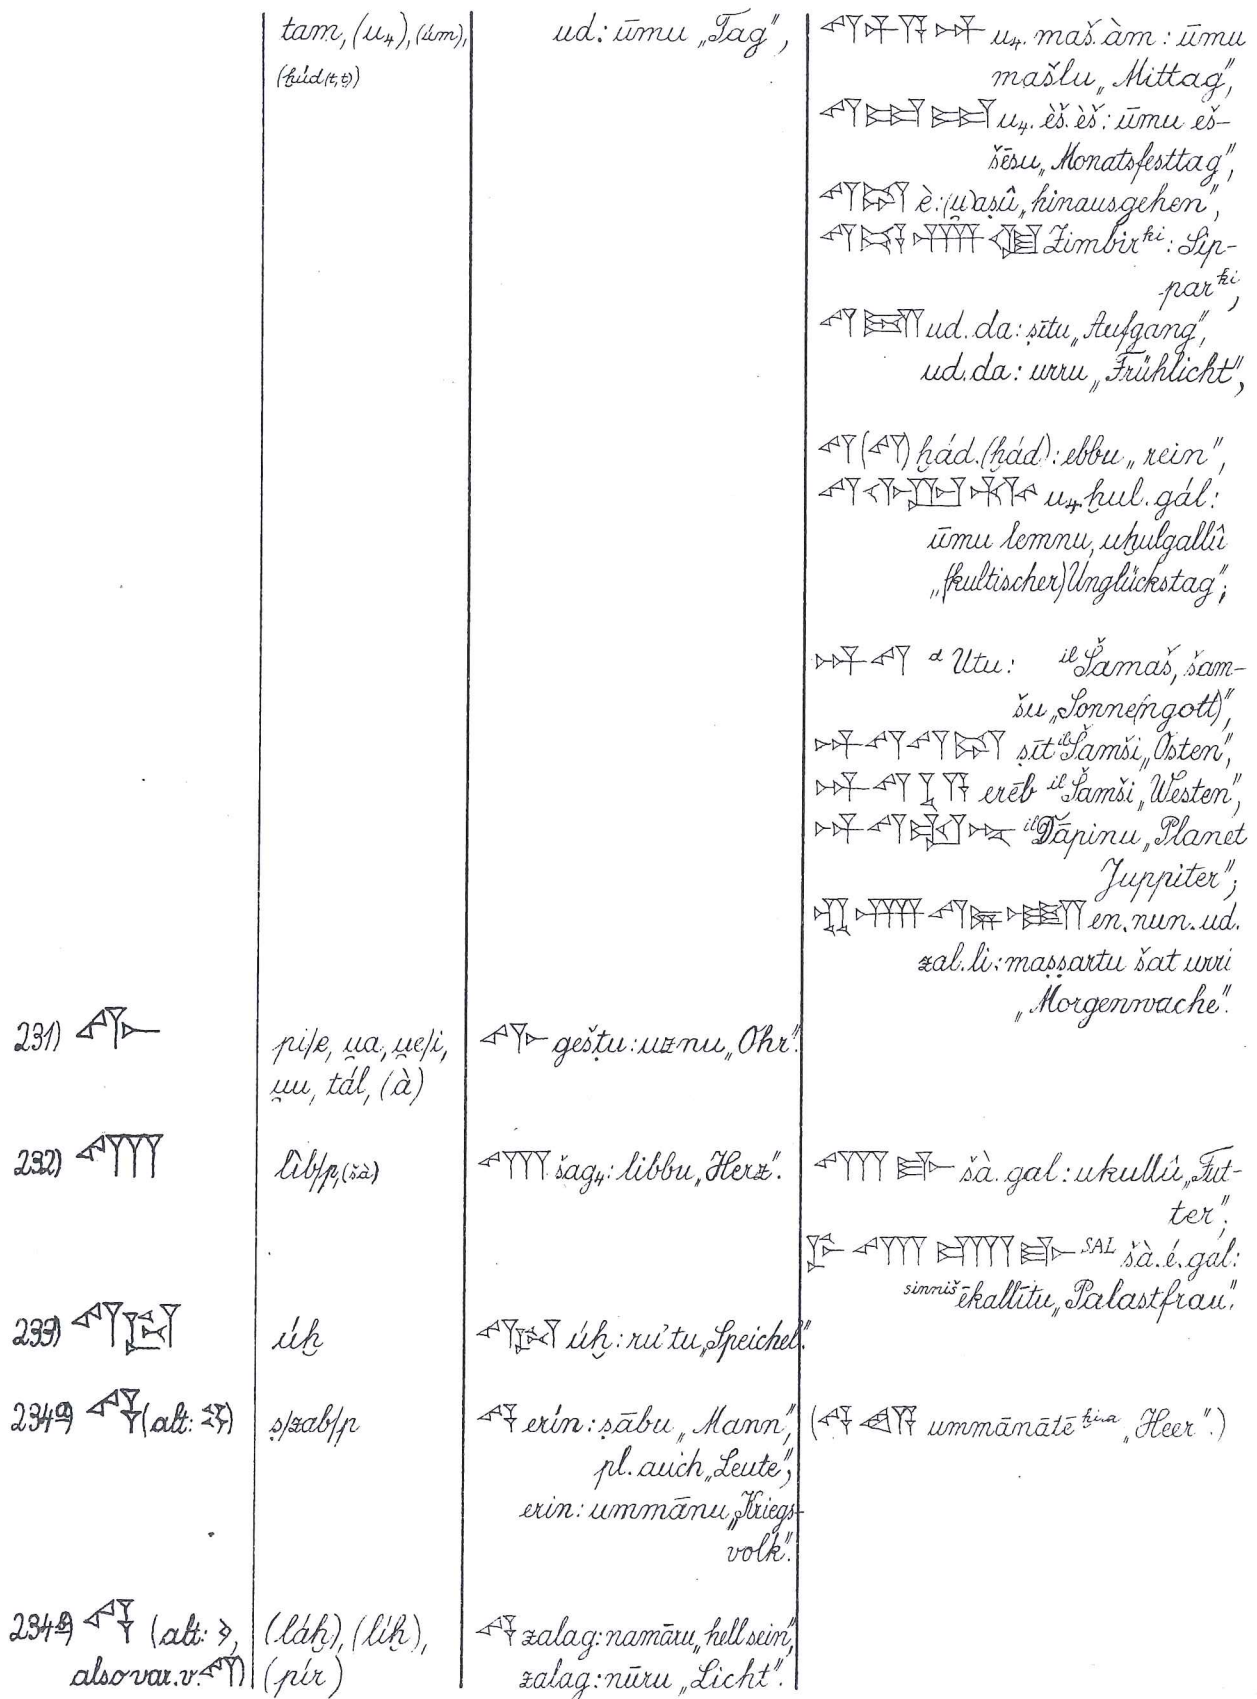 tam, (u₄), (úm), ud: ūmu „Tag", 𒌓𒈦𒀀𒀭 u₄. maš. àm : ūmu
(ḫúd(t,ṭ)) mašlu „Mittag",
𒌓𒂠𒂠 u₄. èš. èš : ūmu eš-
šēsu „Monatsfesttag",
è : (u̯)aṣû „hinausgehen",
𒌓𒄒𒉣𒆠 Zimbir ᵏⁱ : Sip-
par ᵏⁱ,
𒌓𒁕 ud. da : ṣītu „Aufgang",
ud. da : urru „Frühlicht",
𒌓(𒌓) ḫád. (ḫád) : ebbu „rein",
𒌓𒅆𒌨𒅅 u₄ ḫul. gál :
ūmu lemnu, uḫulgallû
„(kultischer) Unglückstag",
𒀭𒌓 ᵈ Utu : ⁱˡ Šamaš, šam-
šu „Sonne(ngott)",
𒀭𒌓𒌓𒁺 ṣīt ⁱˡ Šamši „Osten",
𒀭𒌓𒋙𒀀 erēb ⁱˡ Šamši „Westen",
𒀭𒌓 ⁱˡ Dāpinu „Planet
Juppiter",
𒂗𒉣𒌓𒍝𒇷 en. nun. ud.
zal. li : maṣṣartu šat urri
„Morgenwache".
231) 𒉿 pi/e, u̯a, u̯e/i, 𒉿 geštu : uznu „Ohr".
u̯u, tál, (à)
232) 𒊮 lìb/p, (šà) 𒊮 šag₄ : libbu „Herz". 𒊮𒃲 šà. gal : ukullû „Fut-
ter",
𒊩𒊮𒂍𒃲 SAL šà. é. gal :
sinniš ēkallītu „Palastfrau".
233) 𒌔 úḫ 𒌔 úḫ : ru'tu „Speichel".
234a) 𒂟 (alt: ) ṣ/zab/p 𒂟 erín : ṣābu „Mann", (𒂟𒄭𒀀 ummānātē ḫi.a „Heer".)
pl. auch „Leute",
erin : ummānu „Kriegs-
volk".
234b) 𒂟 (alt: , (láḫ), (líḫ), 𒂟 zalag : namāru „hell sein",
also var. v. 𒌓) (pír) zalag : nūru „Licht".